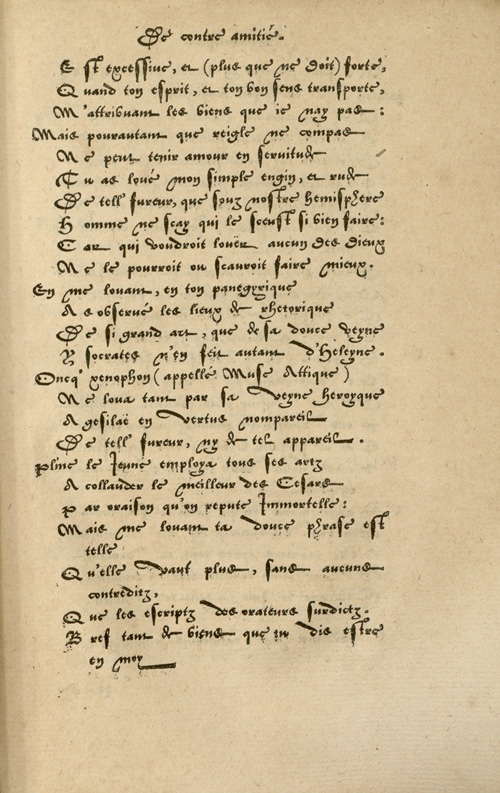 De contre amitié.
Est excessiue, et (plus que ne doit) forte,
Quand ton esprit, et ton bon sens transporte,
M'attribuant les biens que ie nay pas :
Mais pourautant que reigle ne compas
Ne peut tenir amour en seruitude
Tu as loué mon simple engin, et rude
De tell' fureur, que souz nostre hemisphere
Homme ne scay qui le sceust si bien faire:
Car qui voudroit louër aucun des dieux
Ne le pourroit ou scauroit faire mieux.
En me louant, en ton panegyrique
As obserué les lieux de rhetorique
De si grand art, que de sa douce veyne
Ysocrates n'en feit autant d'Heleyne.
Oncq' xenophon (appellé Muse Attique)
Ne loua tant par sa veyne heroyque
Agesilaë en vertus nompareil
De tell' fureur, ny de tel appareil.
Pline le Ieune employa tous ses artz
A collauder le meilleur des Cesars
Par oraison qu'on repute Immortelle:
Mais me louant ta douce phrase est
telle
Qu'elle vaut plus, sans aucuns
contreditz,
Que les escriptz des orateurs surdictz.
Bref tant de biens que tu dis estre
en moy